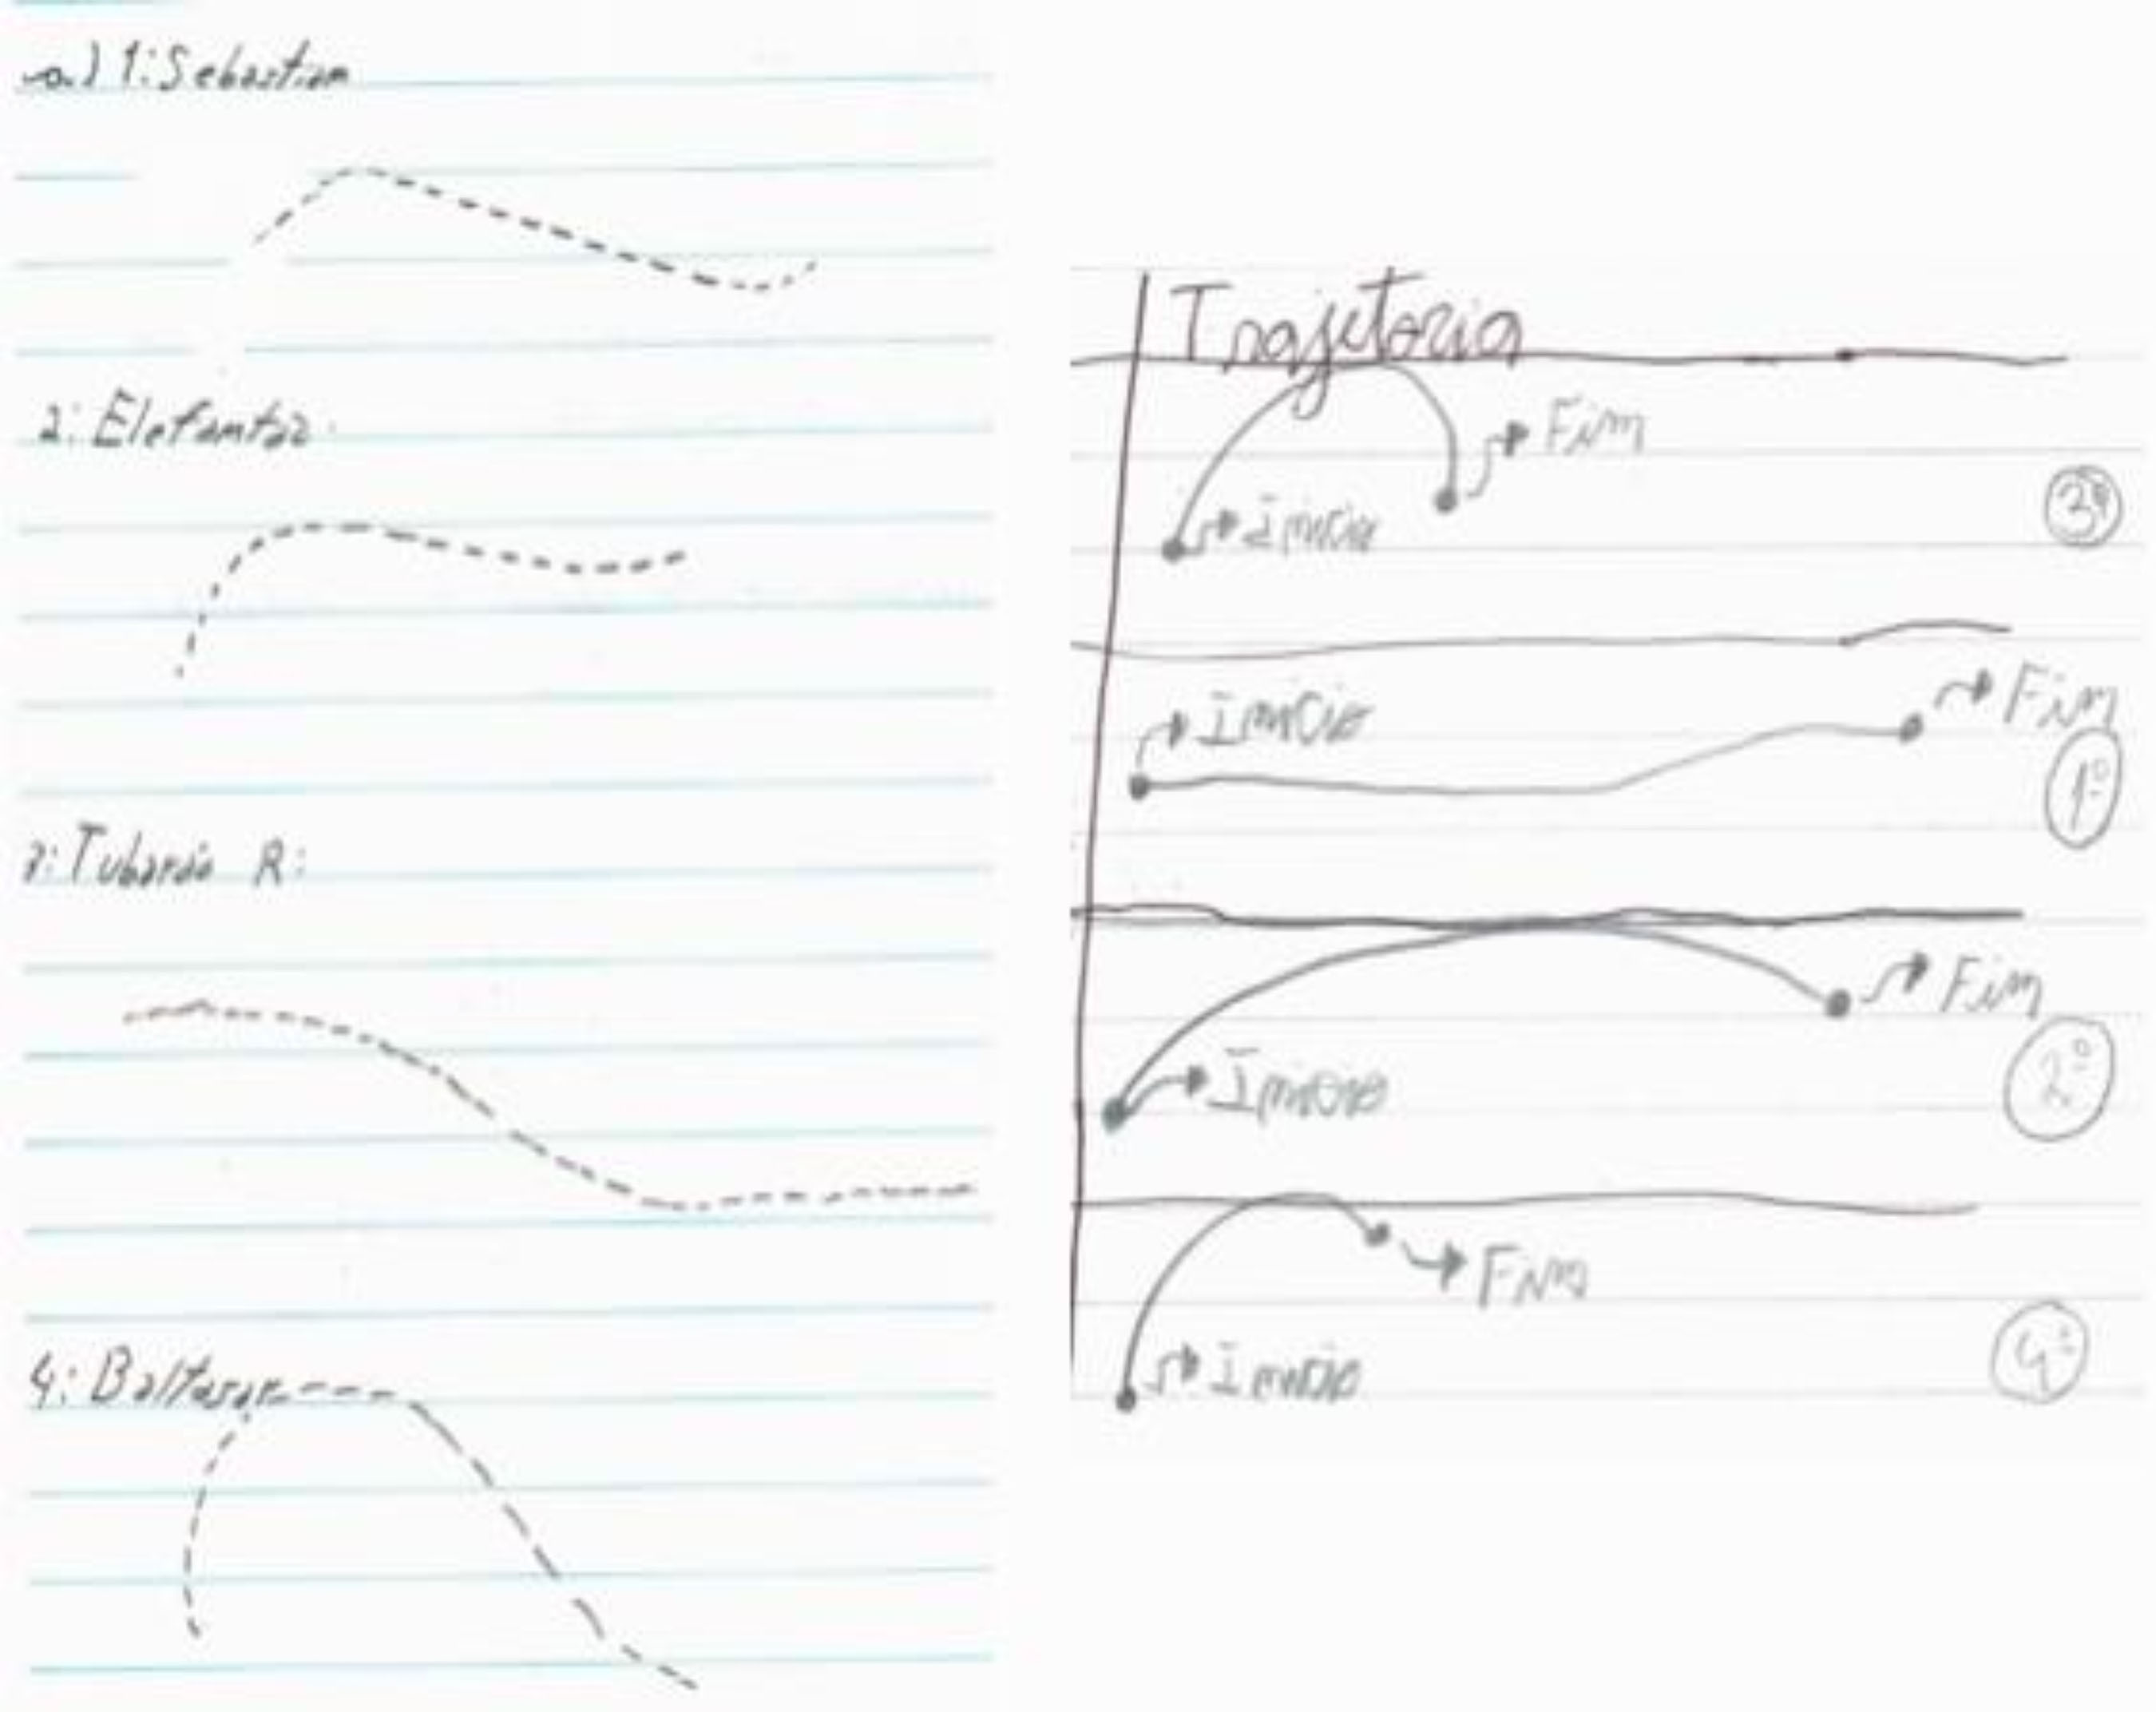 a) 1: Sebastian
2: Elefantaz:
3: Tubarão R:
4: Baltasar
Trajetoria
Fim
Inicio
3º
Inicio
Fim
1º
Fim
Inicio
2º
Fim
Inicio
4º